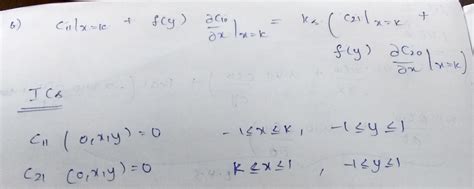 6) C₁₁|ₓ₌ₖ + f(y) ∂C₁₀/∂x|ₓ₌ₖ = k₂ ( C₂₁|ₓ₌ₖ +
f(y) ∂C₂₀/∂x|ₓ₌ₖ )
ICs
C₁₁ (0,x,y) = 0 -1≤x≤k, -1≤y≤1
C₂₁ (0,x,y) = 0 k≤x≤1, -1≤y≤1